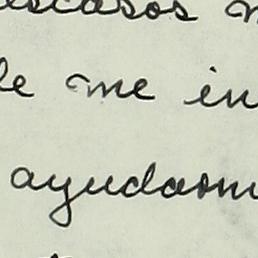 escasos
me in
ayudarm